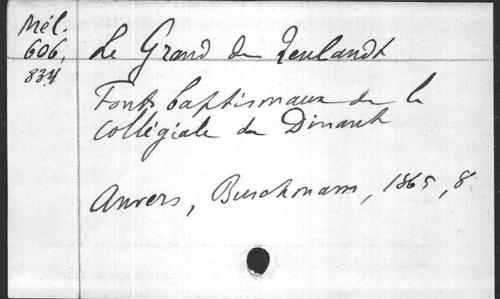 Mél.
606,
834
Le Grand de Reulandt
Fonts baptismaux de la
collégiale de Dinant
Anvers, Buschmann, 1865, 8.